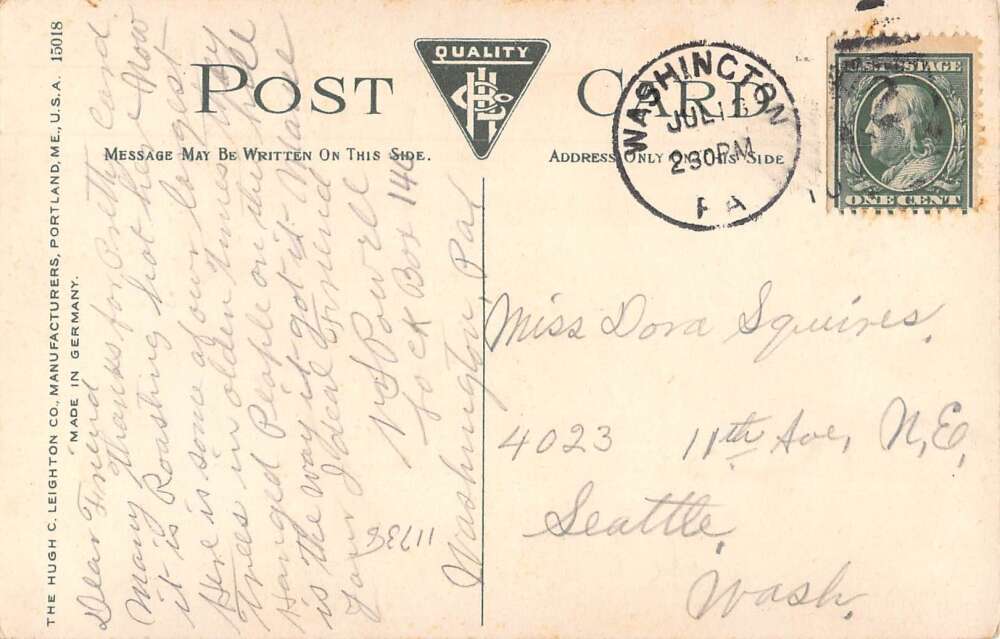 QUALITY
POST CARD
MESSAGE MAY BE WRITTEN ON THIS SIDE.
ADDRESS ONLY ON THIS SIDE
THE HUGH C. LEIGHTON CO., MANUFACTURERS, PORTLAND, ME., U.S.A. 15018
MADE IN GERMANY.
WASHINGTON
JUL 13
230PM
PA
U.S. POSTAGE
ONE CENT
Dear Friend
Many Thanks for Pretty Card
it is Roasting hot here Now
Here is some of our logest
Trees in olden times they
Hanged People on this tree
is the way it got it Name
Your Ideal Friend
Powell
Lock Box 144
Washington Pa
11738
Miss Dora Squires.
4023 11th Ave, N,E,
Seattle,
Wash.